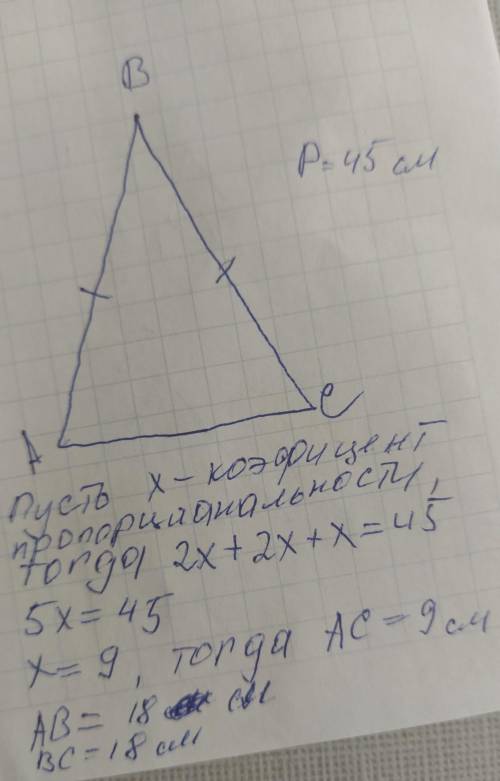 B
P=45 см
A
C
Пусть x - коэфицент
пропорциональности,
тогда 2x+2x+x=45
5x=45
x=9, тогда AC=9см
AB=18 см
BC=18см